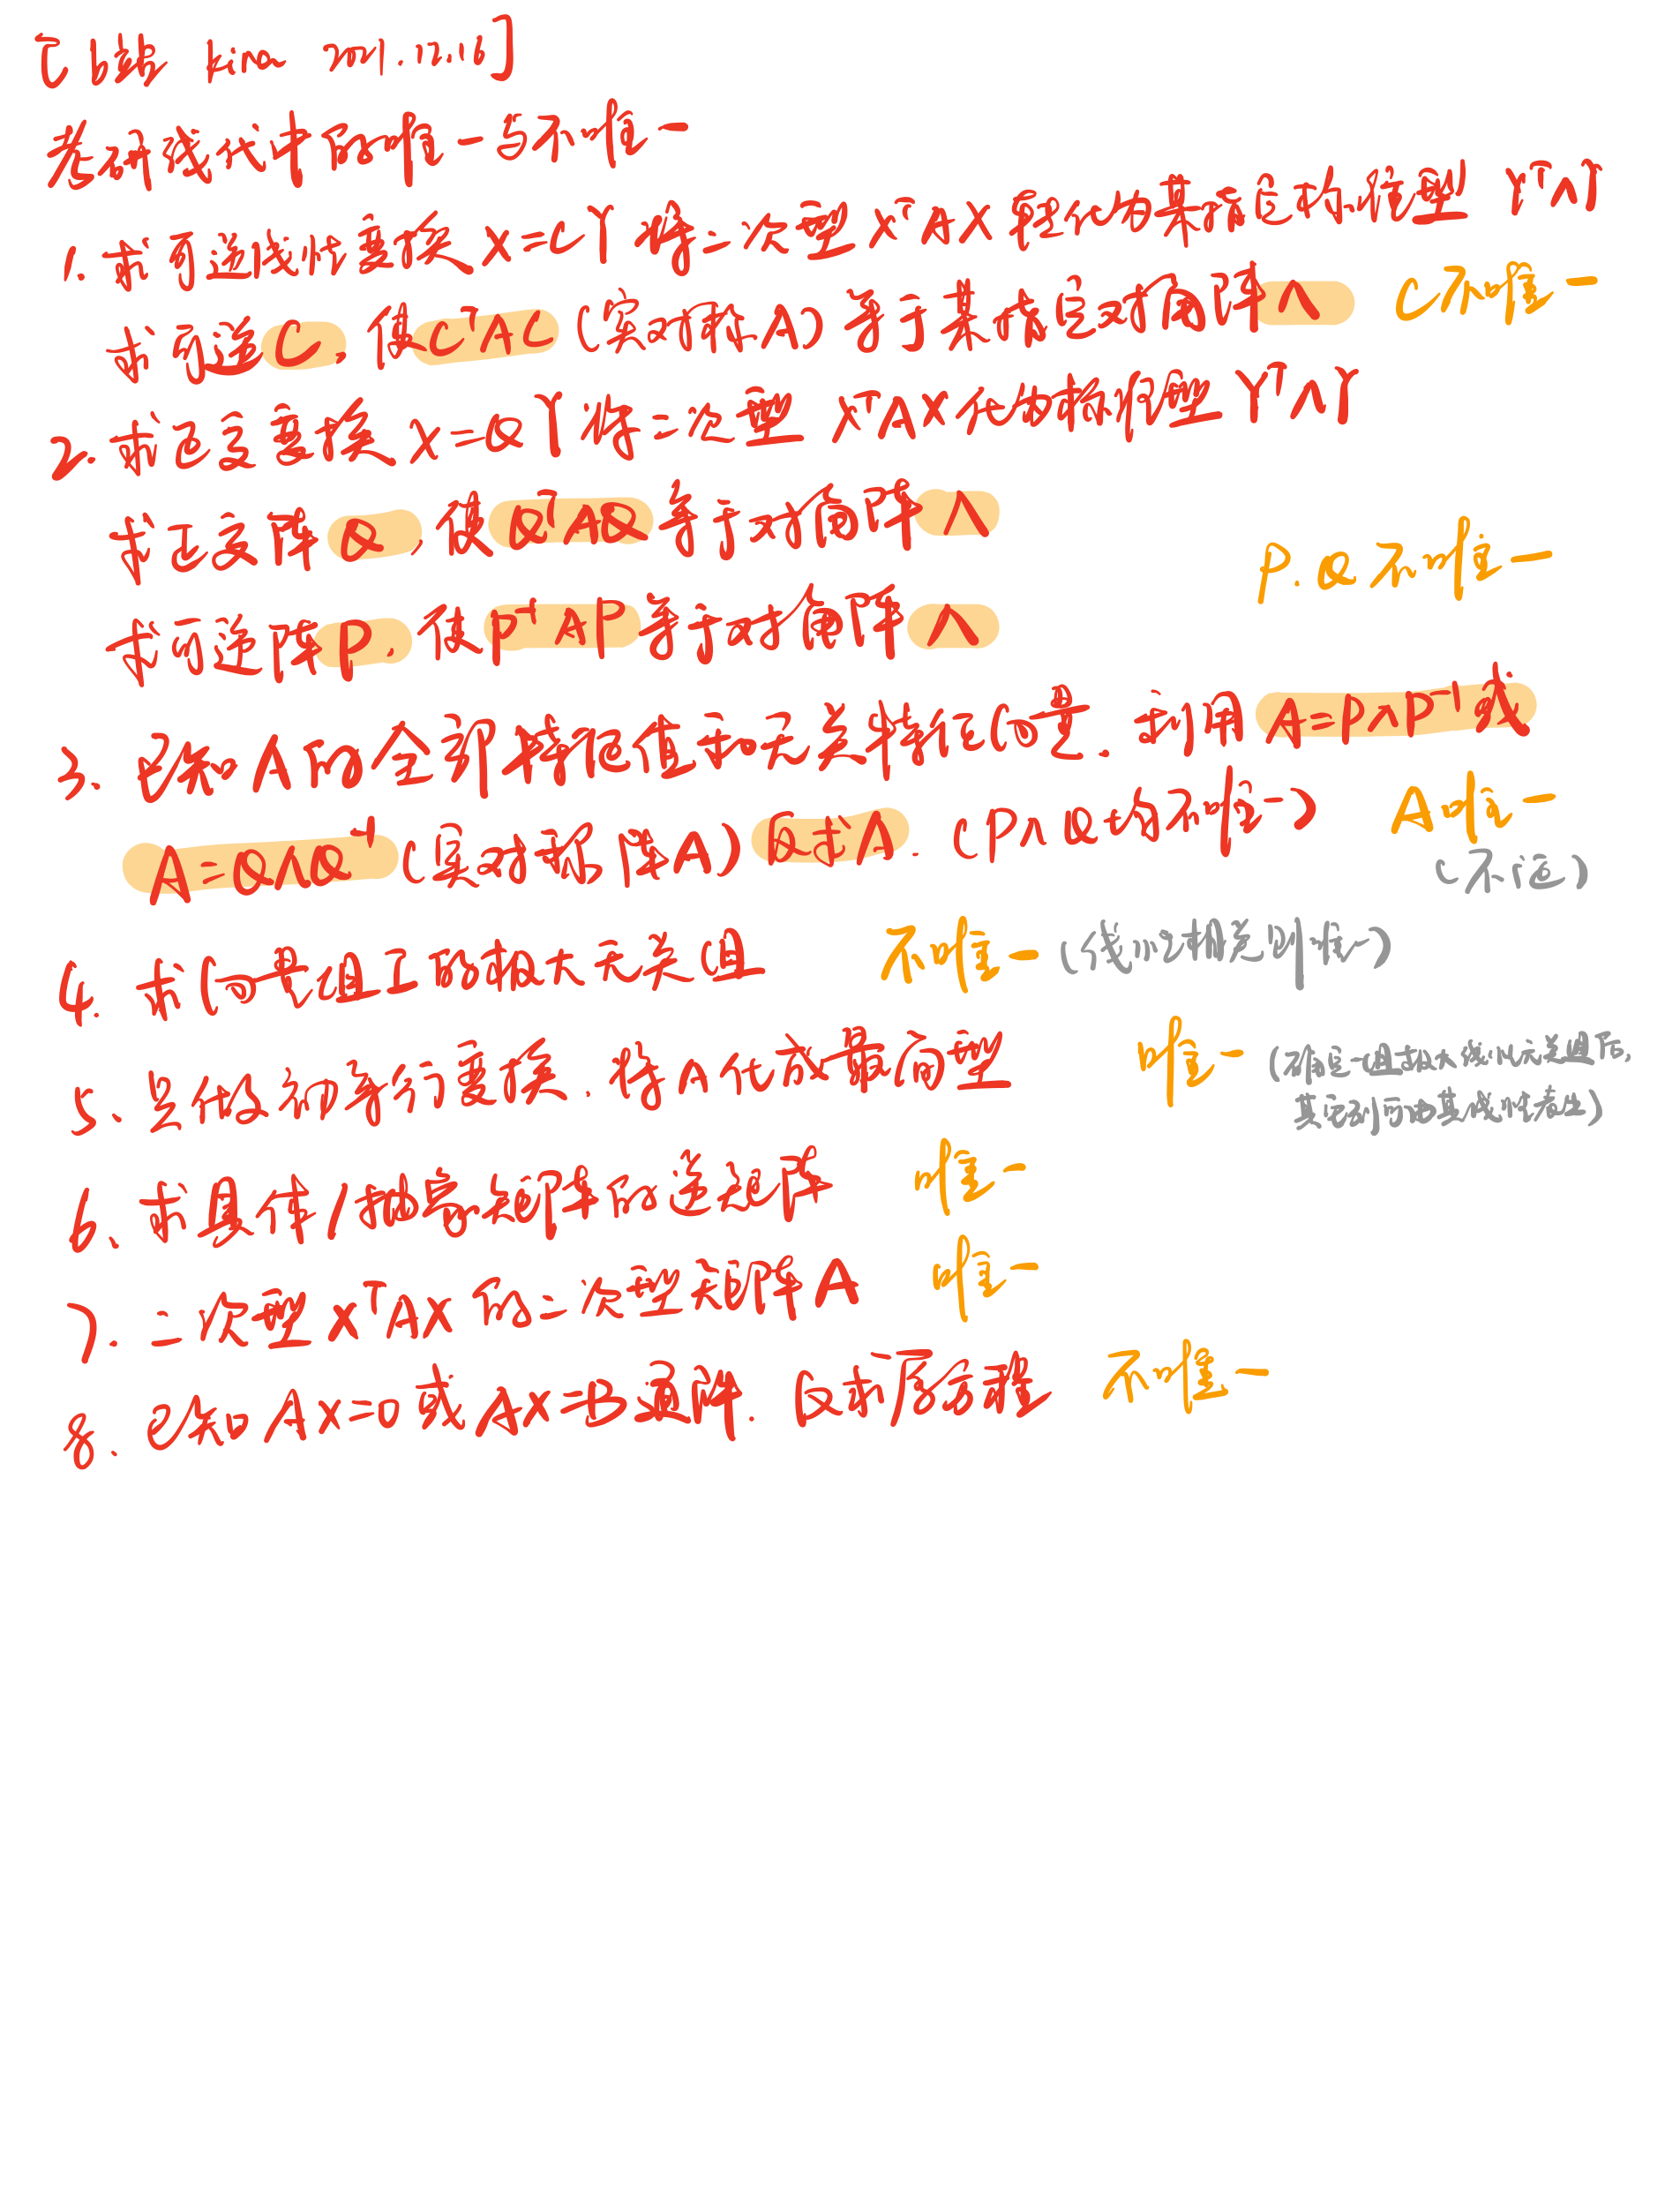 [b站 kira 2021.12.16]
考研线代中的唯一与不唯一
1. 求可逆线性变换 X=CY 将二次型 XᵀAX 转化为某指定标准型 YᵀΛY
求可逆C, 使CᵀAC (实对称A) 等于某指定对角阵Λ C不唯一
2. 求正交变换 X=QY 将二次型 XᵀAX 化为标准型 YᵀΛY
求正交阵Q, 使QᵀAQ等于对角阵Λ
P.Q不唯一
求可逆阵P, 使P⁻¹AP等于对角阵Λ
3. 已知A的全部特征值和无关特征向量. 利用 A=PΛP⁻¹或
A=QΛQ⁻¹ (实对称阵A) 反求A. (PΛQ均不唯一) A唯一
(不定)
4. 求向量组I的极大无关组 不唯一 (线性相关则唯一)
5、只作初等行变换. 将A化成最简型 唯一 (确定一组极大线性无关组后,
其它列可由其线性表出)
6、求具体/抽象矩阵的逆矩阵 唯一
7. 二次型XᵀAX的二次型矩阵A 唯一
8. 已知 Ax=0 或 Ax=b 通解. 反求原方程 不唯一